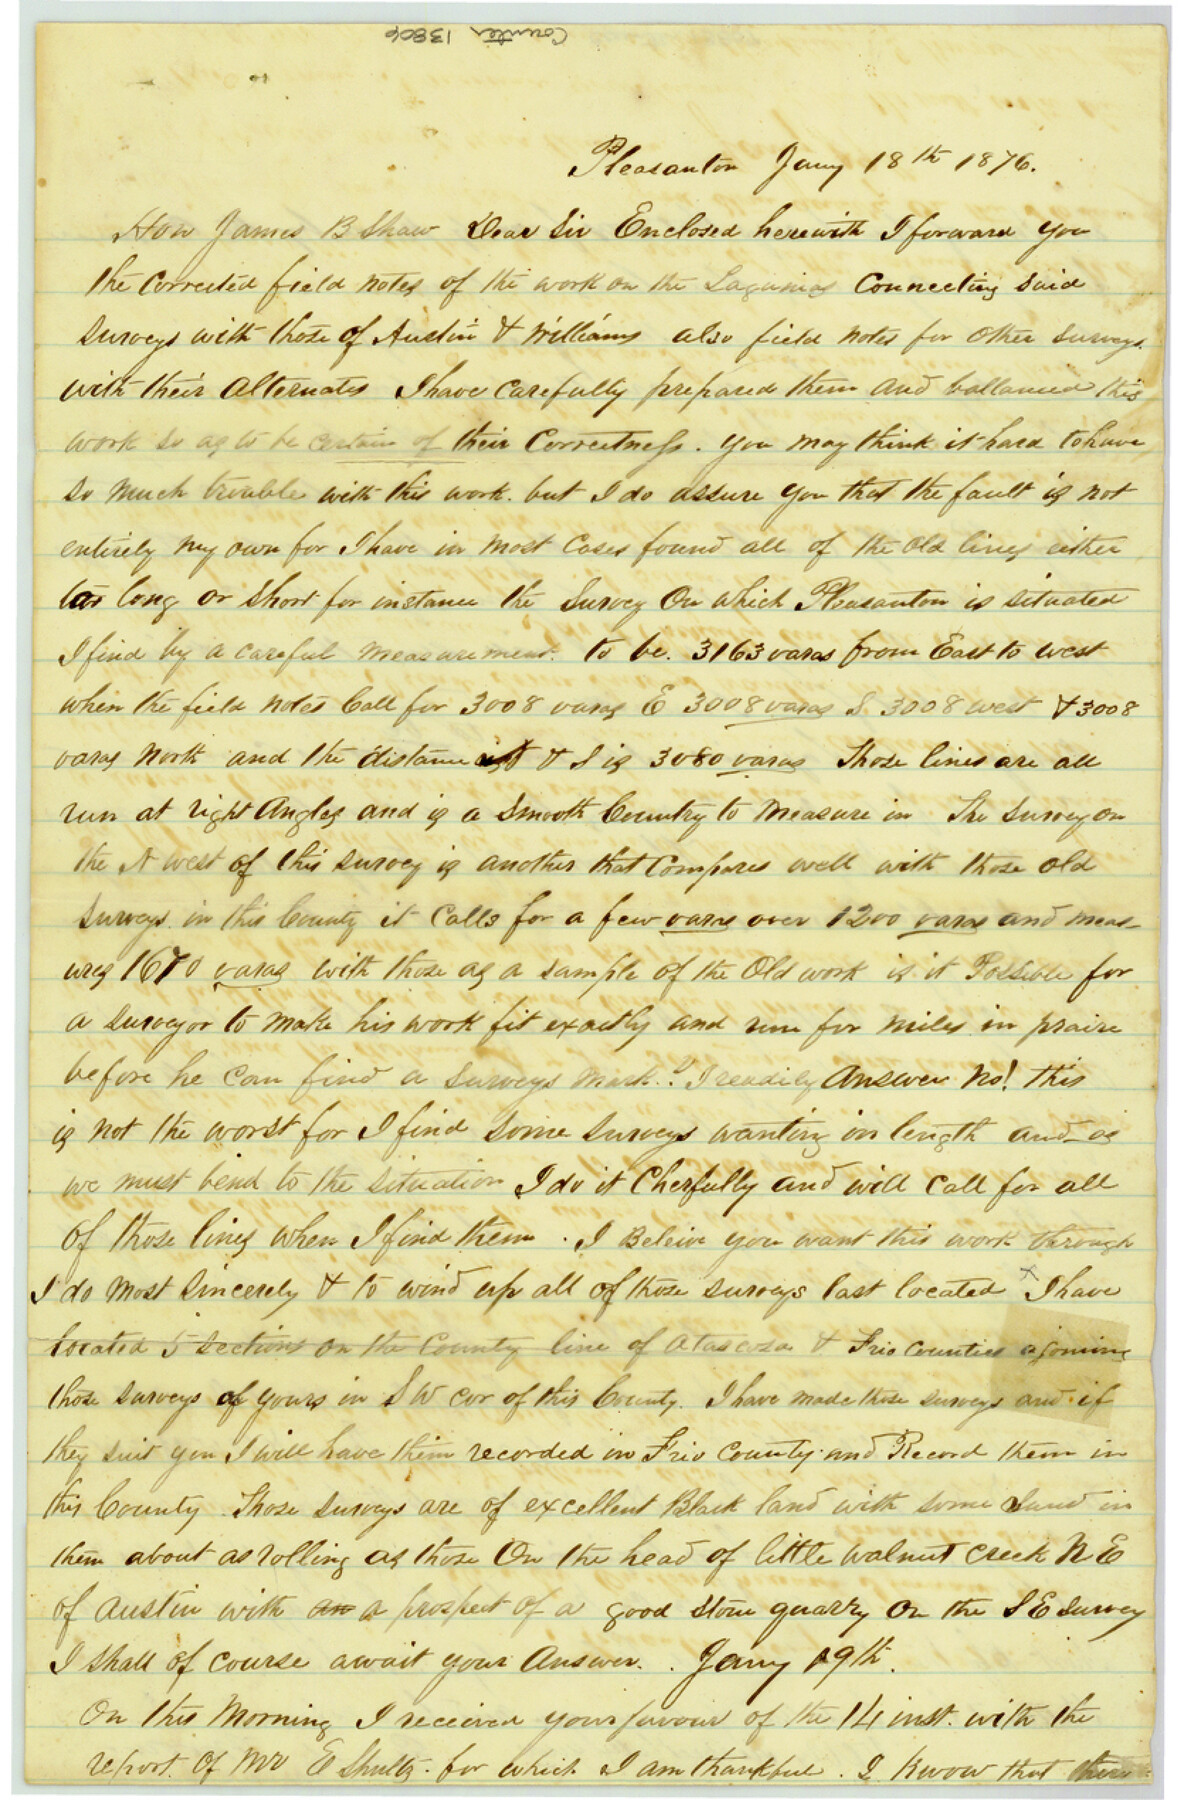 Counter 13806
Pleasanton Jany 18th 1876.
Hon James B Shaw Dear Sir Enclosed herewith I forward you
the corrected field notes of the work on the Lagunias Connecting said
surveys with those of Austin & Williams also field notes for other surveys
with their alternates I have carefully prepared them and ballanced this
work so as to be certain of their Correctness. you may think it hard to have
so much trouble with this work. but I do assure you that the fault is not
entirely my own for I have in most cases found all of the old lines either
too long or short for instance the Survey On which Pleasanton is situated
I find by a careful measurement. to be. 3163 varas from East to west
when the field notes Call for 3008 varas E 3008 varas S 3008 west & 3008
varas North and the distance & S is 3080 varas Those lines are all
run at right Angles and is a Smooth Country to measure in The survey on
the N west of this survey is another that Compares well with those old
surveys in this County it Calls for a few varas over 1200 varas and meas-
ures 1670 varas with those as a sample of the Old work is it Possible for
a surveyor to make his work fit exactly and run for miles in praire
before he can find a surveys mark.? I readily Answer No! this
is not the worst for I find some surveys wanting in length and as
we must bend to the situation I do it Cherfully and will call for all
of those lines when I find them. I Beleive you want this work through
I do most sincerely & to wind up all of those surveys last located x I have
located 5 sections on the County line of Atascosa & Frio Counties ajoining
those surveys of yours in S W cor of this County. I have made those surveys and if
they suit you I will have them recorded in Frio County and Record them in
this County. Those surveys are of excellent Black land with some Sand in
them about as rolling as those On the head of little walnut creek N E
of Austin with an a prospect of a good stone quarry on the S E Survey
I shall of course await your Answer. Jany 19th.
On this Morning I received your favour of the 14 inst. with the
report. Of Mr E Shultz. for which I am thankful. I know that there